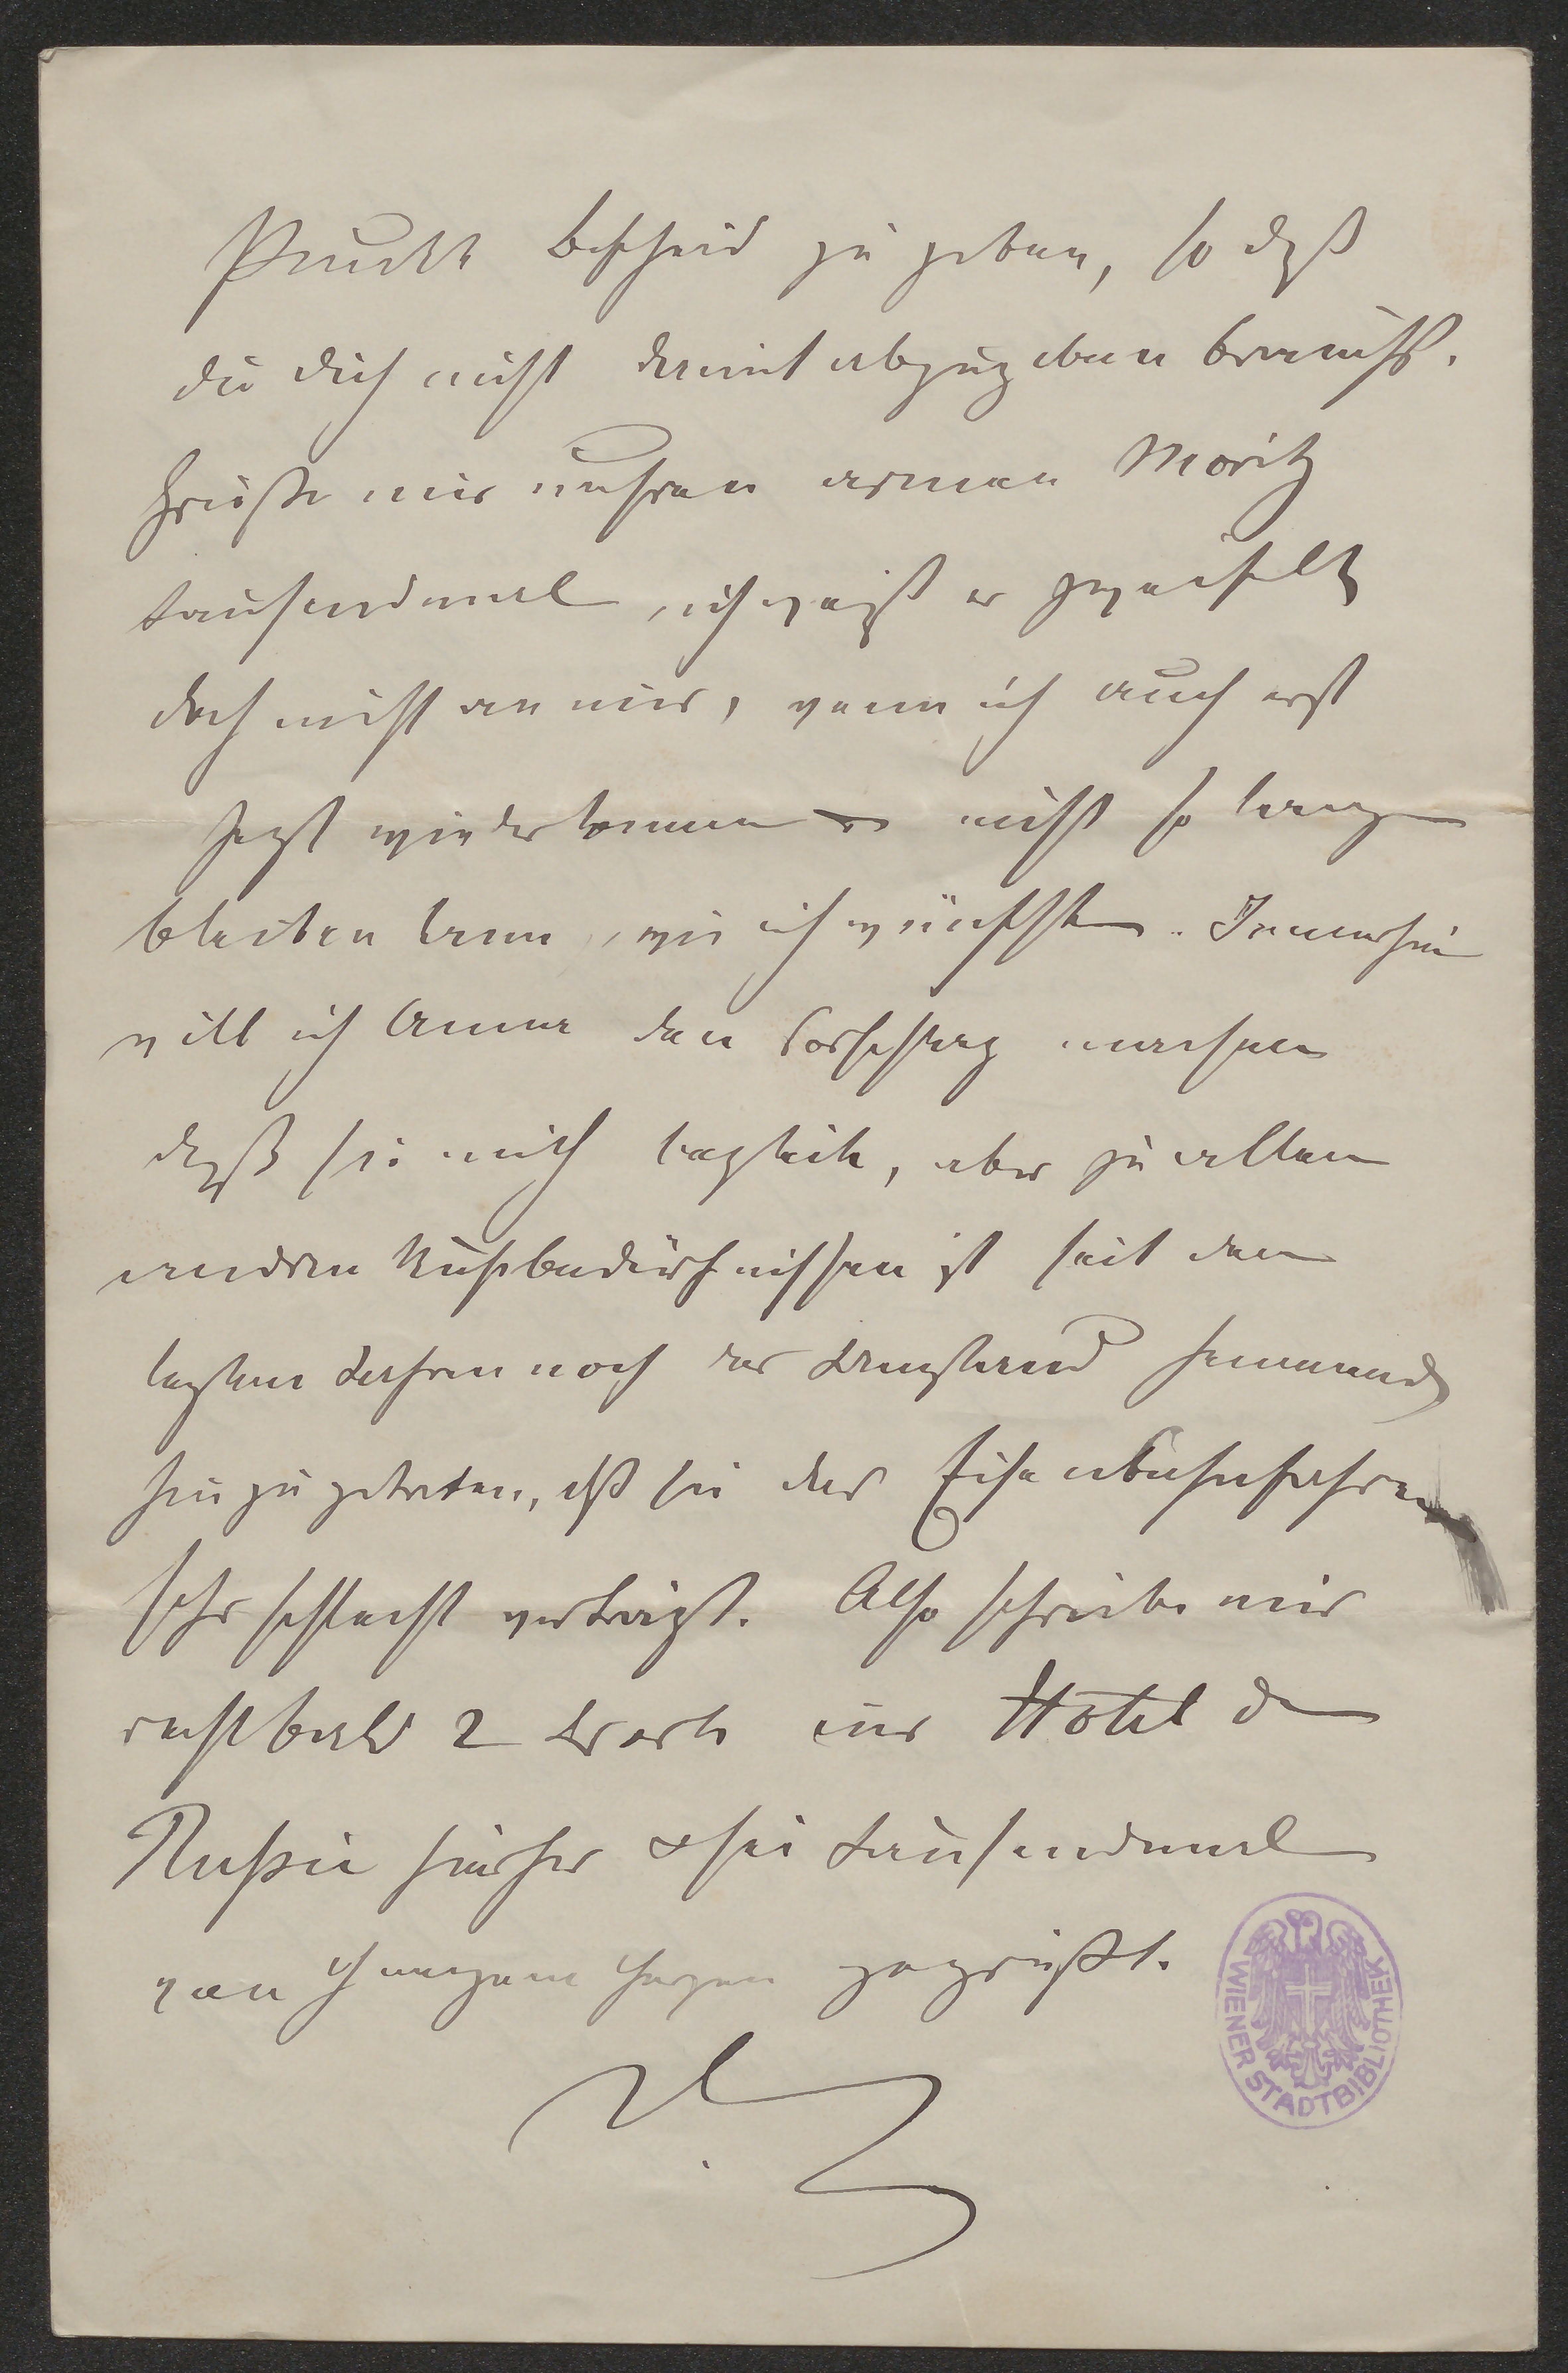 Punkte Bescheid zu geben, so daß
du dich nicht damit abzugeben brauchst.
Grüße mir unsren armen Moritz
tausendmal, ich weiß er zweifelt
doch nicht an mir, wenn ich auch erst
jezt wiederkomme & nicht so lang
bleiben kann, wie ich wünschte. Immerhin
will ich Anna den Vorschlag machen
daß sie mich begleite, aber zu allen
andren Ruhebedürfnissen ist seit den
lezten Jahren noch der Umstand hemmend
hinzugetreten, daß sie das Eisenbahnfahren
sehr schlecht verträgt. Also schreibe mir
recht bald 2 Worte ins Hôtel de
Russie hierher & sei tausendmal
von ganzem Herzen gegrüßt.
WIENER STADTBIBLIOTHEK